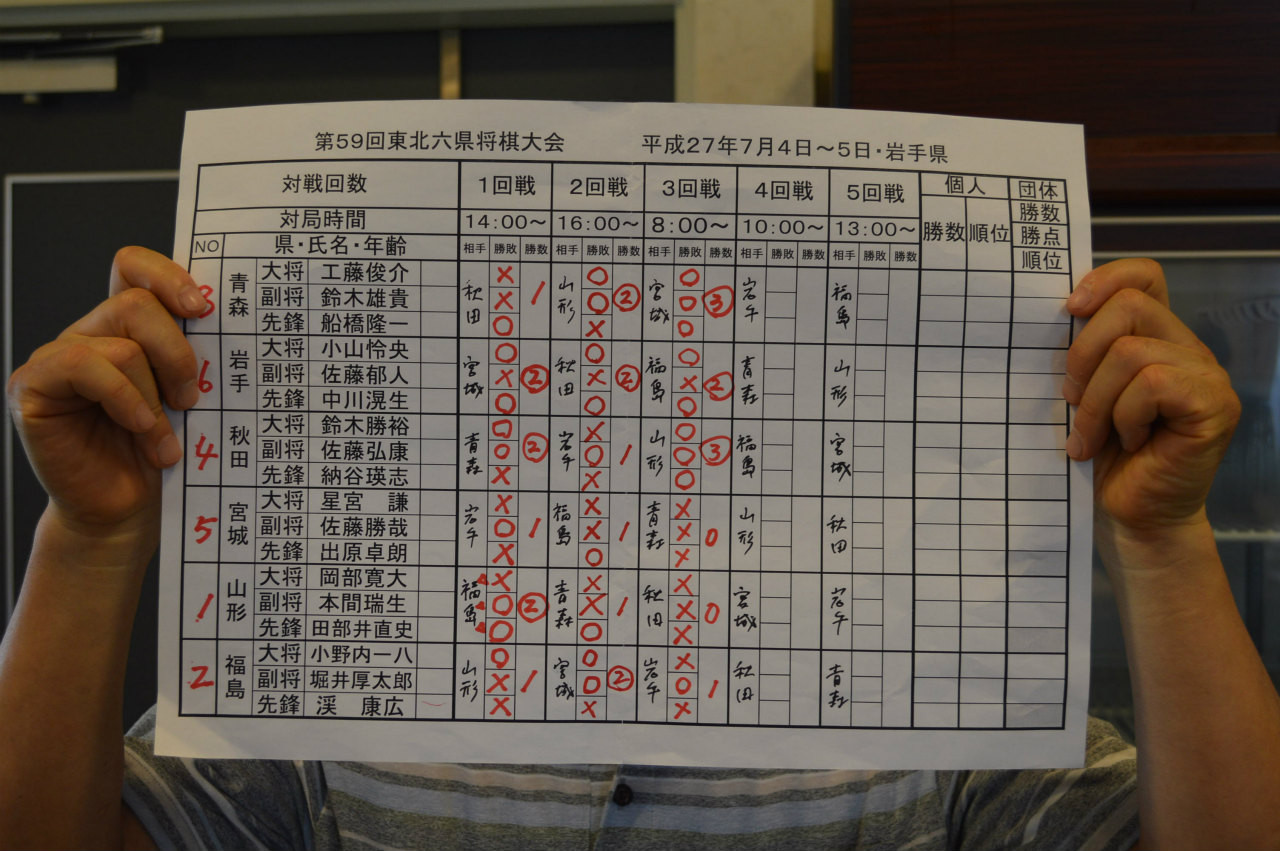 第59回東北六県将棋大会 平成27年7月4日～5日・岩手県
対戦回数 1回戦 2回戦 3回戦 4回戦 5回戦 個人 団体
対局時間 14:00～ 16:00～ 8:00～ 10:00～ 13:00～ 勝数 順位 勝数
勝点
NO 県・氏名・年齢 相手 勝敗 勝数 相手 勝敗 勝数 相手 勝敗 勝数 相手 勝敗 勝数 相手 勝敗 勝数 順位
3 青森 大将 工藤俊介 秋田 × 1 山形 ○ ② 宮城 ○ ③ 岩手 福島
副将 鈴木雄貴 × ○ ○
先鋒 船橋隆一 ○ × ○
6 岩手 大将 小山怜央 宮城 ○ ② 秋田 ○ ② 福島 ○ ② 青森 山形
副将 佐藤郁人 × × ×
先鋒 中川滉生 ○ ○ ○
4 秋田 大将 鈴木勝裕 青森 ○ ② 岩手 × 1 山形 ○ ③ 福島 宮城
副将 佐藤弘康 ○ ○ ○
先鋒 納谷瑛志 × × ○
5 宮城 大将 星宮 謙 岩手 × 1 福島 × 1 青森 × 0 山形 秋田
副将 佐藤勝哉 ○ × ×
先鋒 出原卓朗 × ○ ×
1 山形 大将 岡部寛大 福島 × ② 青森 × 1 秋田 × 0 宮城 岩手
副将 本間瑞生 ○ × ×
先鋒 田部井直史 ○ ○ ×
2 福島 大将 小野内一八 山形 ○ 1 宮城 ○ ② 岩手 × 1 秋田 青森
副将 堀井厚太郎 × ○ ○
先鋒 渓 康広 × × ×